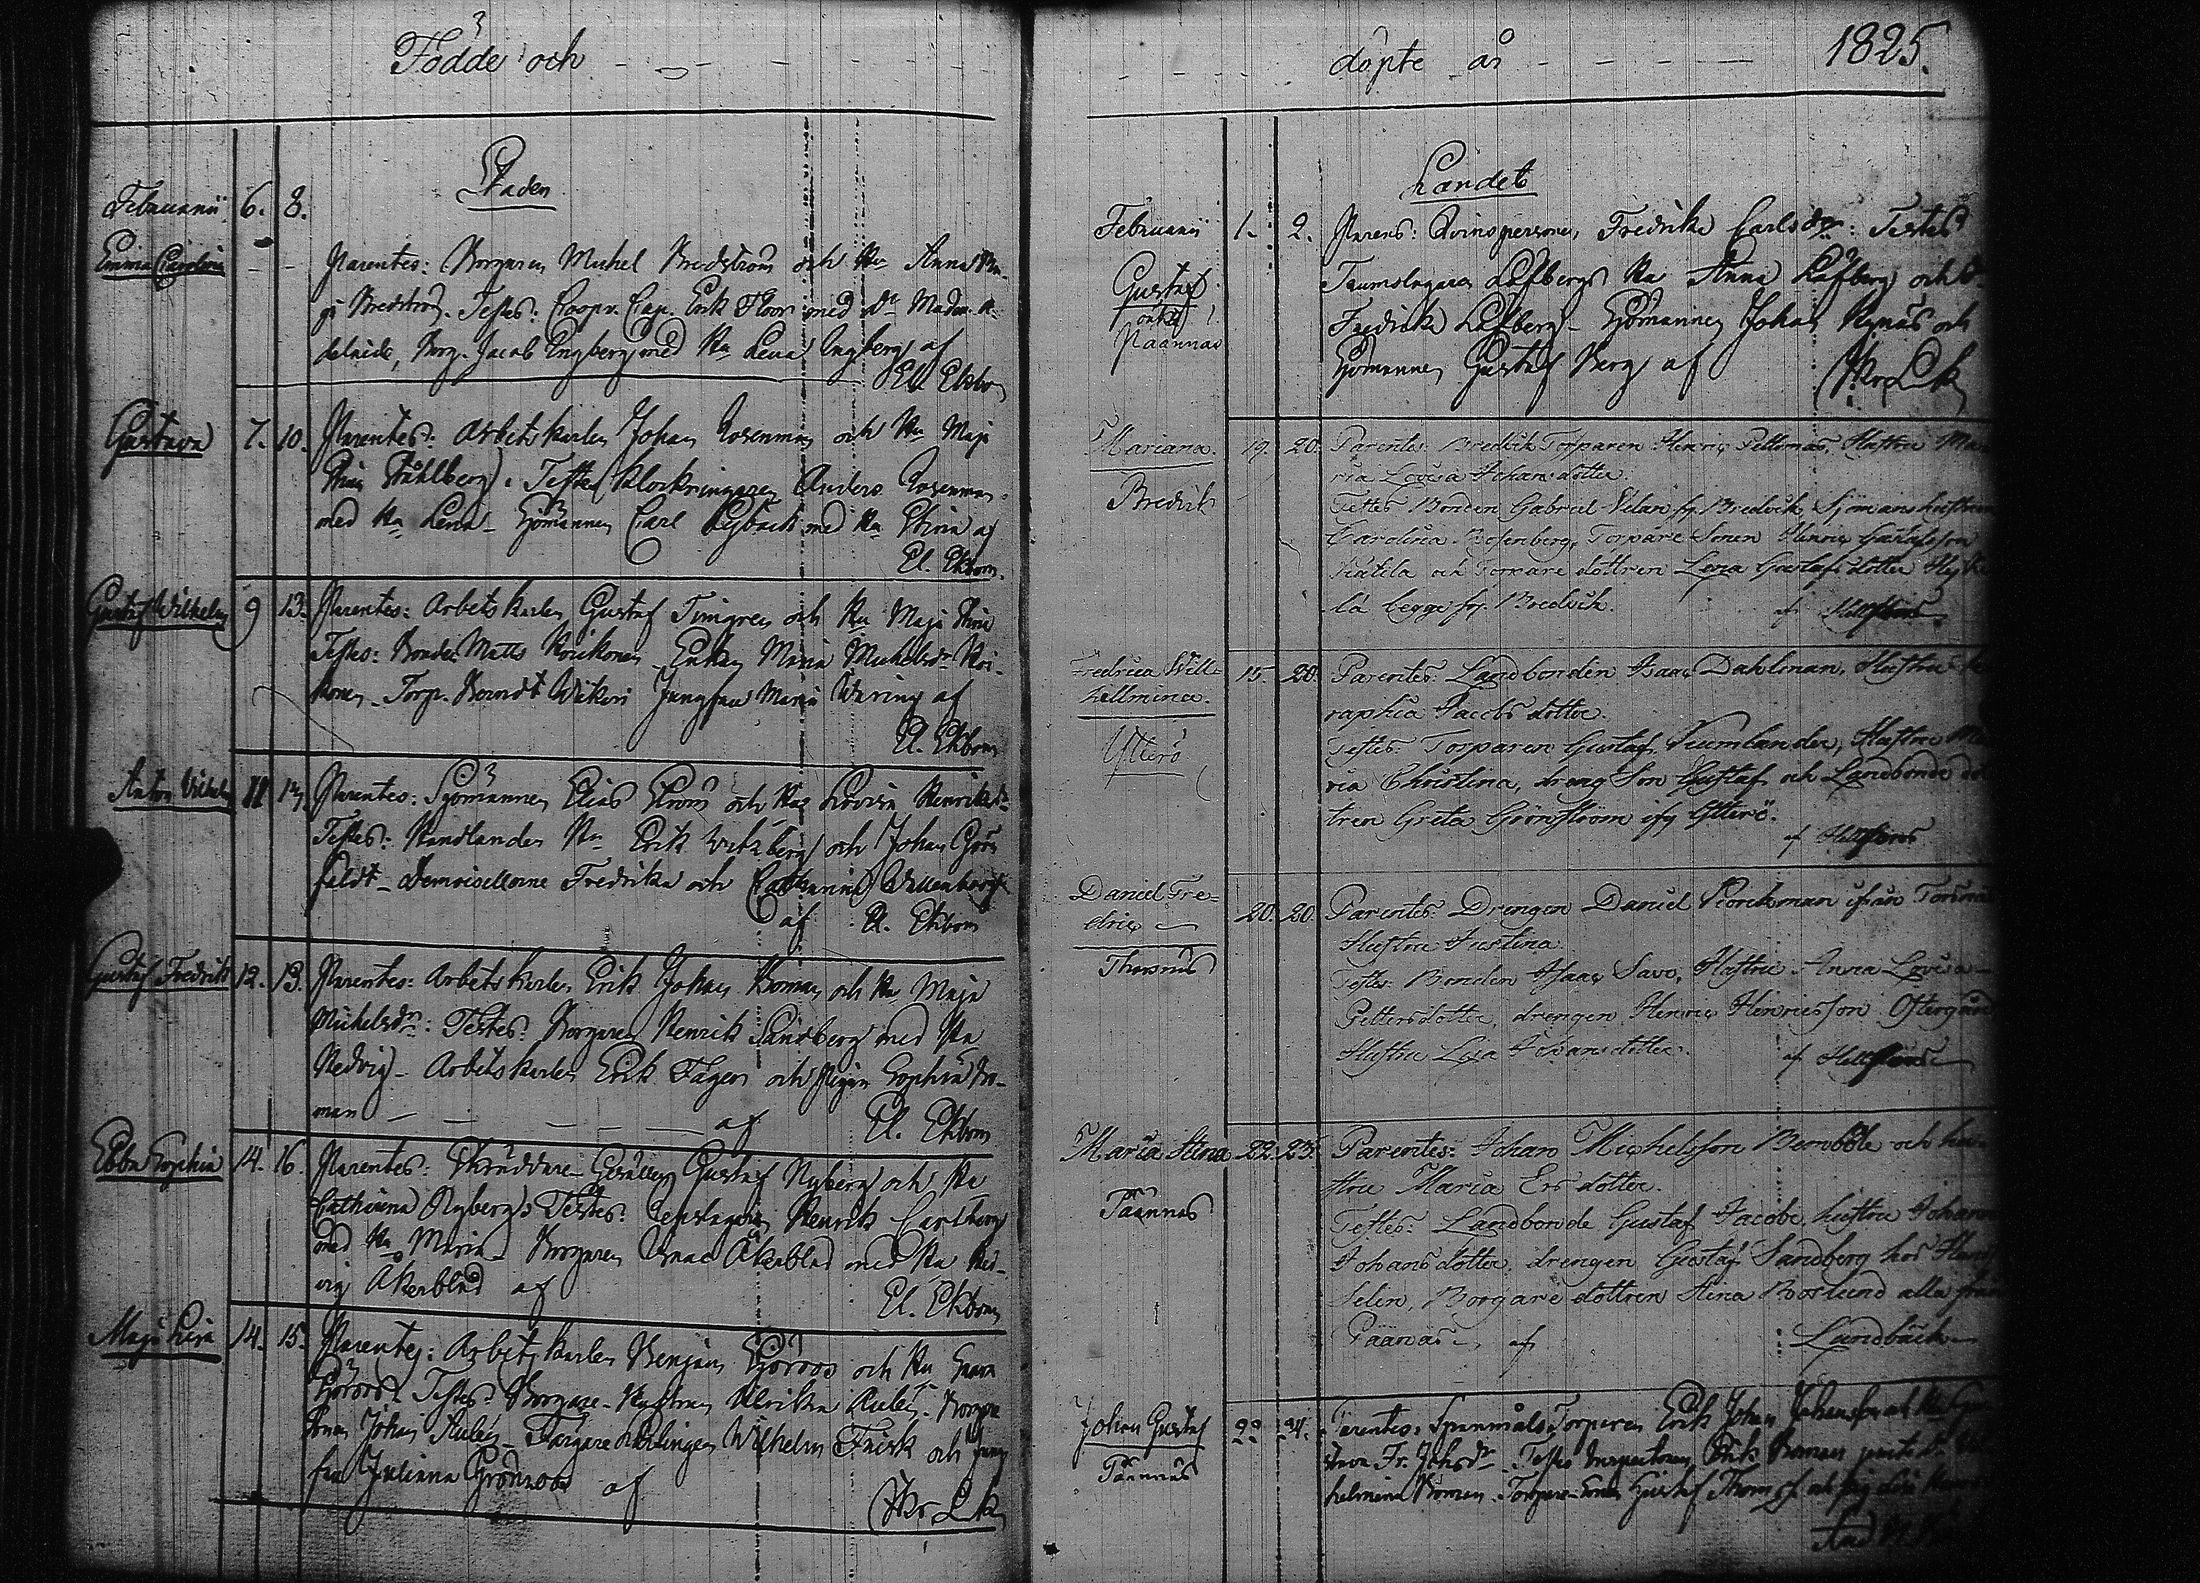 Födde och
Staden
Februarii 6. 8.
Emma Carolina
Parentes: Borgaren Michel Bredström och Hu Anna
Bredström. Testes: Coopv. Cap. Erik Floor med Dr Mader. A-
delaide, Borg. Jacob Engberg med Hu Lena Engberg af
El. Ekbom
Gustava 7. 10. Parentes: Arbetskarlen Johan Rosenman och Hu Maja
Stina Ståhlberg. Testes Klockringaren Anders Rosenman
med Hu Lena - Sjömannen Carl Nybäck med Hu Stina af
El. Ekbom.
Gustaf Wilhelm 9 13. Parentes: Arbetskarlen Gustaf Timgren och Hu Maja Stina
Testes: Bonden Matts Koikonen Enkan Maria Michelsdr Koi-
konen - Torp. Berndt Wikari Jungfru Maria Waring af
El. Ekbom
Anton Vilhelm 11 17. Parentes: Sjömannen Elias Ström och Hu Lovisa Henriksdr
Testes: Handlanden Hr Erik Wekberg och Johan Grön
feldt - Demoisellerne Fredrika och Catharina Wallenborg
af El. Ekbom
Gustaf Fredrik 12. 13. Parentes: Arbetskarlen Erik Johan Roman och Hu Maja
Michelsdr: Testes: Borgaren Henrik Sandberg med Hu
Hedvig - Arbetskarlen Erik Fager och Pigan Sophia Ro-
man af El. Ekbom
Ebba Sophia 14. 16. Parentes: Skräddare Gesällen Gustaf Nyberg och Hu
Catharina Nyberg. Testes: Repslagaren Henrik Carlberg
med Hu Maria - Borgaren Isaac Åkerblad med Hu Hed-
vig Åkerblad af El. Ekbom
Maja Lisa 14. 15. Parentes: Arbetskarlen Benjam Sjöroos och Hu
Sjöroos. Testes: Borgare-Hustrun Ulrika Aulén - Borgare
Sonen Johan Aulén - Färgare Lärlingen Wilhelm Frisk och Jung
fru Juliana Grönroos af
döpte år 1825.
Landet
Februarii 1. 2. Parens: Qvinspersonen Fredrika Carlsdr: Testes
Gustaf
oäkta
Påännäs
Tunnslagaren Löfbergs Hu Anna Löfberg och D.
Fredrika Löfberg - Sjömannen Johan Nynäs och
Sjömannen Gustaf Berg af
Mariana. 19. 20. Parentes: Bredvik Torparen Henric Pettersas, Hustru Ma
ria Lovisa Johansdotter.
Bredvik
Testes Bonden Gabriel Velan fr Bredvik, Sjömanshustrun
Carolina Rosenberg, Torpare Sonen Henric Gustafsson
och Torpare dottren Lena Gustafsdotter
la begge fr. Bredvik. af
Fredrica Will-
hellmina. 15. 20. Parentes: Landbonden Isaac Dahlman, Hustru Se
raphia Jacobsdotter.
Ytterö
Testes: Torparen Gustaf Sumlander, Hustru Ma
ria Christina, dreng Son Gustaf och Landbonde dot
tren Greta Grönström ifr Ytterö.
af
Daniel Fre-
dric 20. 20. Parentes: Drengen Daniel Storckman ifrån Torsnäs
Hustru Justina.
Thorsnäs
Testes: Bonden Isaac Savo, Hustru Anna Lovisa
Pettersdotter, drengen Henric Henricsson Östergård
Hustru Lisa Johansdotter. af
Maria Stina 22. 23. Parentes: Johan Michelsson Bernböle och hu-
stru Maria Ersdotter.
Påännäs
Testes: Landbonde Gustaf Jacobs, hustru Johanna
Johansdotter, drengen Gustaf Sandberg hos
Selin, Borgare dottren Stina Roslund alla från
Päänäs af Lundbäck
Johan Gustaf 22. 24. Parentes: Spannmåls Torparen Erik Johan Johansson och Hu
Påännäs
stava Fr. Johsdr. Testes Inspectoren Erik Roman
helmina Roman. Torpare-Sonen Gustaf Thomsf. och pig